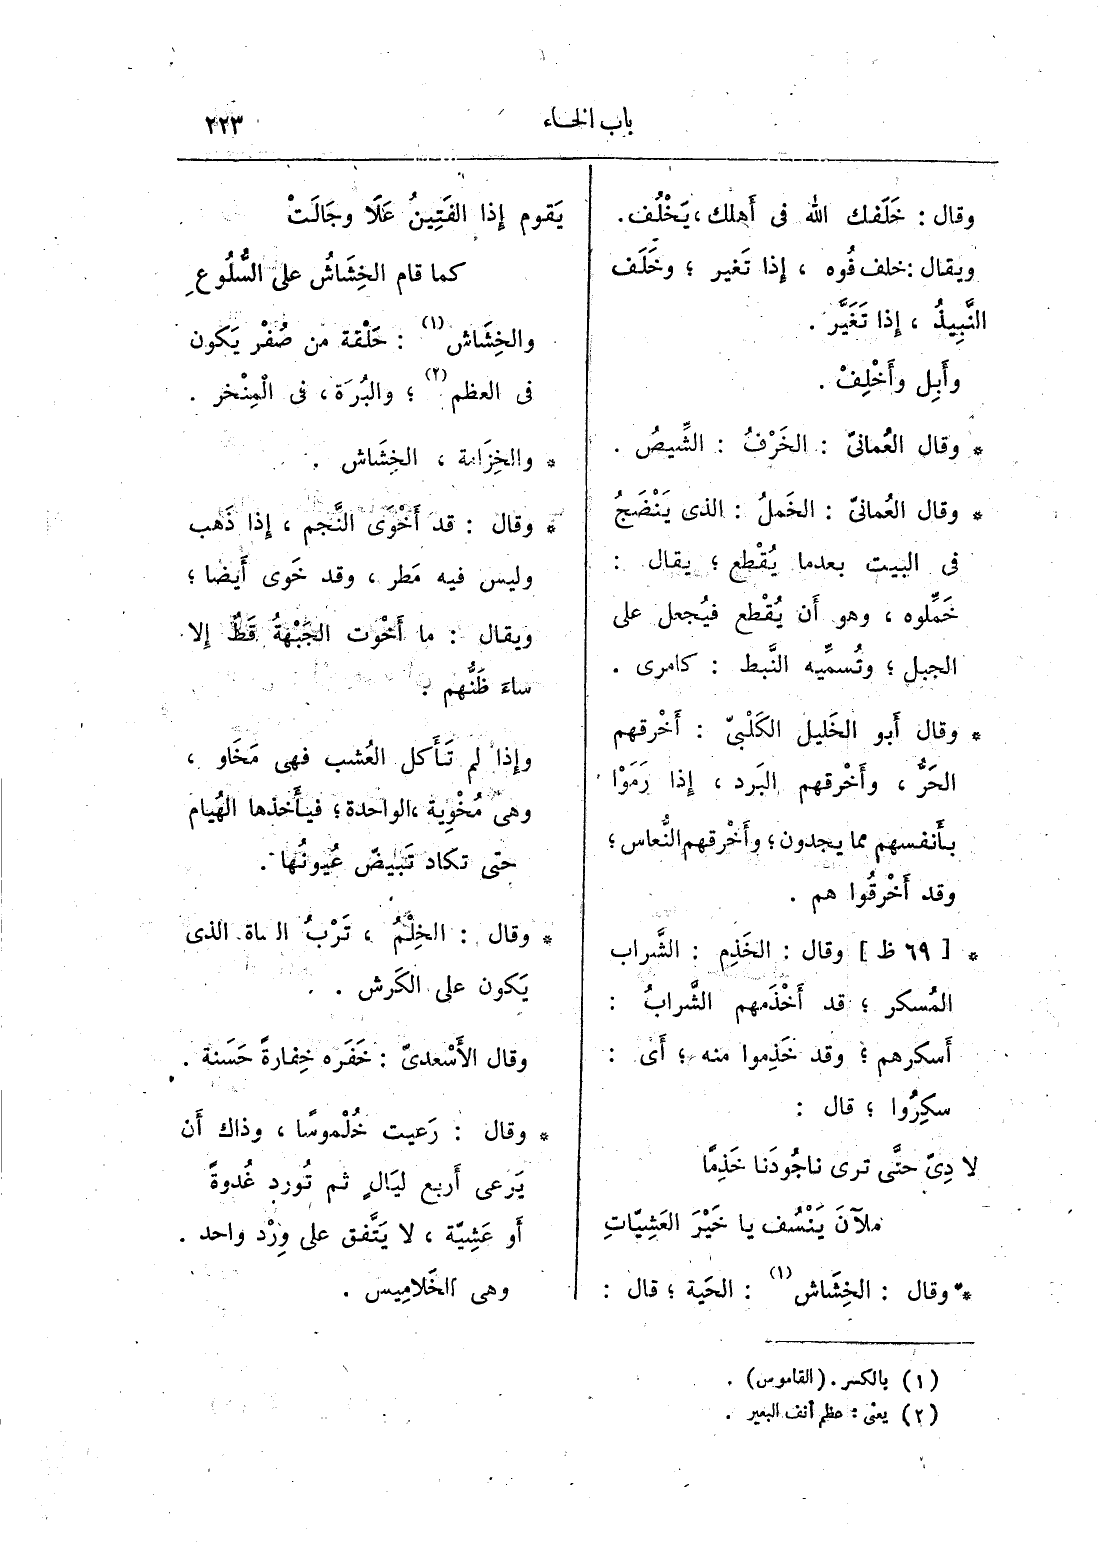 باب الخاء
٢٢٣
وقال : خَلَفك الله فى أَهلك ، يَخْلُف .
ويقال : خلف فُوه ، إذا تَغير ؛ وخَلَف
النَّبِيذُ ، إذا تَغَيَّر .
وأَبِل وأَخْلِفْ .
* وقال العُمانىّ : الخَرْفُ : الشِّيصُ .
* وقال العُمانىّ : الخَملُ : الذى يَنْضَجُ
فى البيت بعدما يُقْطع ؛ يقال :
خَمِّلوه ، وهو أَن يُقْطع فيُجعل على
الجبل ؛ وتُسمِّيه النَّبط : كامرى .
* وقال أَبو الخَليل الكَلْبىّ : أَخْرقهم
الحَرُّ ، وأَخْرقهم البَرد ، إذا رَمَوْا
بأَنفسهم مما يجدون ؛ وأَخْرقهم النُّعاس ؛
وقد أَخْرقُوا هم .
* [ ٦٩ ظ ] وقال : الخَذِم : الشَّراب
المُسكر ؛ قد أَخْذَمهم الشَّرابُ :
أَسكرهم ؛ وقد خَذِموا منه ؛ أَى :
سكِرُوا ؛ قال :
لا دِىّ حتَّى ترى ناجُودَنا خَذِمًا
ملآنَ يَنْسُف يا خَيْرَ العَشِيّاتِ
* وقال : الخِشَاش (١) : الحَية ؛ قال :
يَقوم إِذا الفَتِينُ عَلَا وجَالَتْ
كما قام الخِشَاشُ على السُّلُوعِ
والخِشَاش (١) : حَلْقة من صُفْر يَكون
فى العظم (٢) ؛ والبُرَة ، فى الْمِنْخر .
* والخِزَامة ، الخِشَاش .
* وقال : قد أَخْوَى النَّجم ، إذا ذَهب
وليس فيه مَطر ، وقد خَوى أَيضا ؛
ويقال : ما أَخْوت الجَبْهةُ قَطُّ إلا
ساءَ ظَنُّهم .
وإذا لم تَأكل العُشب فهى مَخَاو ،
وهى مُخْوِية ، الواحدة ؛ فيأخذها الهُيام
حتى تكاد تَبيضّ عُيونُها .
* وقال : الخِلْمُ ، تَرْبُ الشاة الذى
يَكون على الكَرش .
وقال الأَسْعدىّ : خَفَره خِفارةً حَسَنة .
* وقال : رَعيت خُلْموسًا ، وذاك أَن
يَرعى أَربع ليَالٍ ثم تُورد غُدوةً
أَو عَشِيّة ، لا يَتَّفق على وِرْد واحد .
وهى الخَلامِيس .
(١) بالكسر . (القاموس) .
(٢) يعنى : عظم أنف البعير .